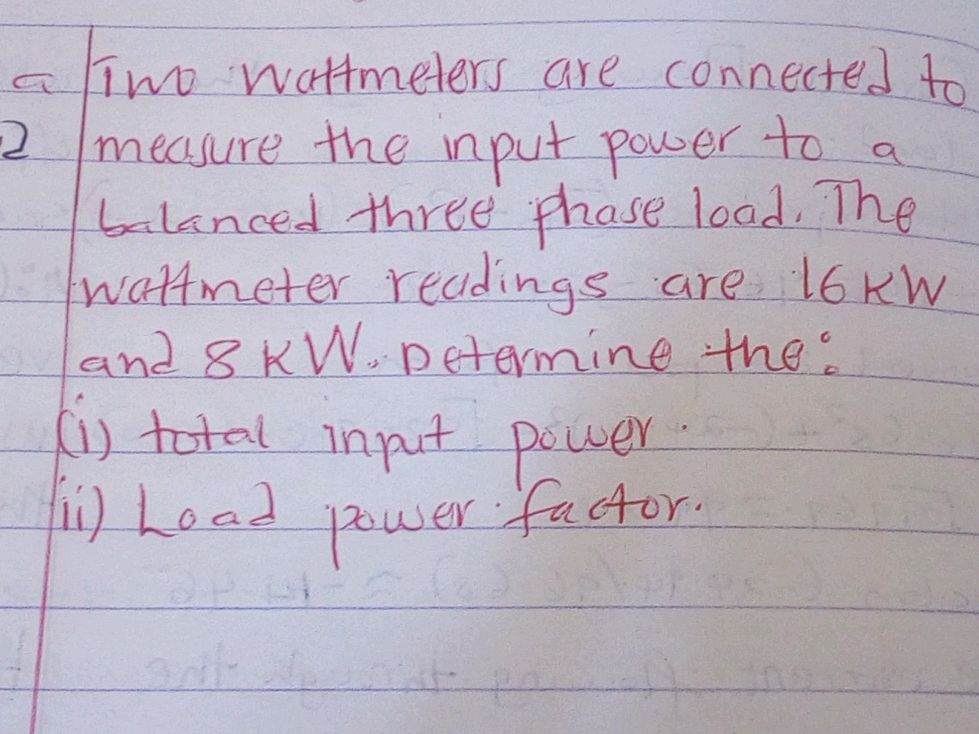 a Two wattmeters are connected to
2 measure the input power to a
balanced three phase load. The
wattmeter readings are 16 KW
and 8 KW. Determine the:
(i) total input power.
ii) Load power factor.